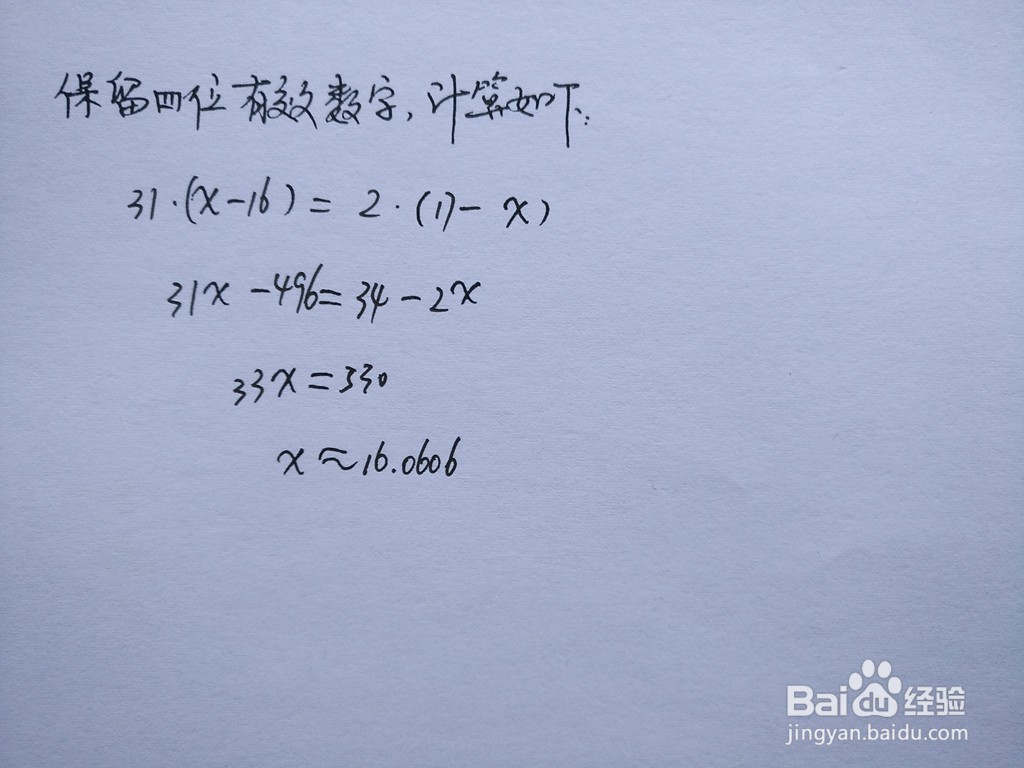 保留四位有效数字,计算如下:
31·(x-16)=2·(17-x)
31x-496=34-2x
33x=330
x≈16.0606
Baidu经验
jingyan.baidu.com